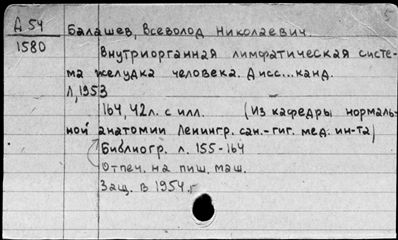 5
Д 54
1580
Балашев, Всеволод Николаевич.
Внутриорганная лимфатическая систе-
ма желудка человека. Дисс...канд.
Л, 1953
164, 42 л. с илл. (Из кафедры нормаль-
ной анатомии Ленингр. сан.-гиг. мед. ин-та)
Библиогр. л. 155-164
Отпеч. на пиш. маш.
Защ. в 1954 г